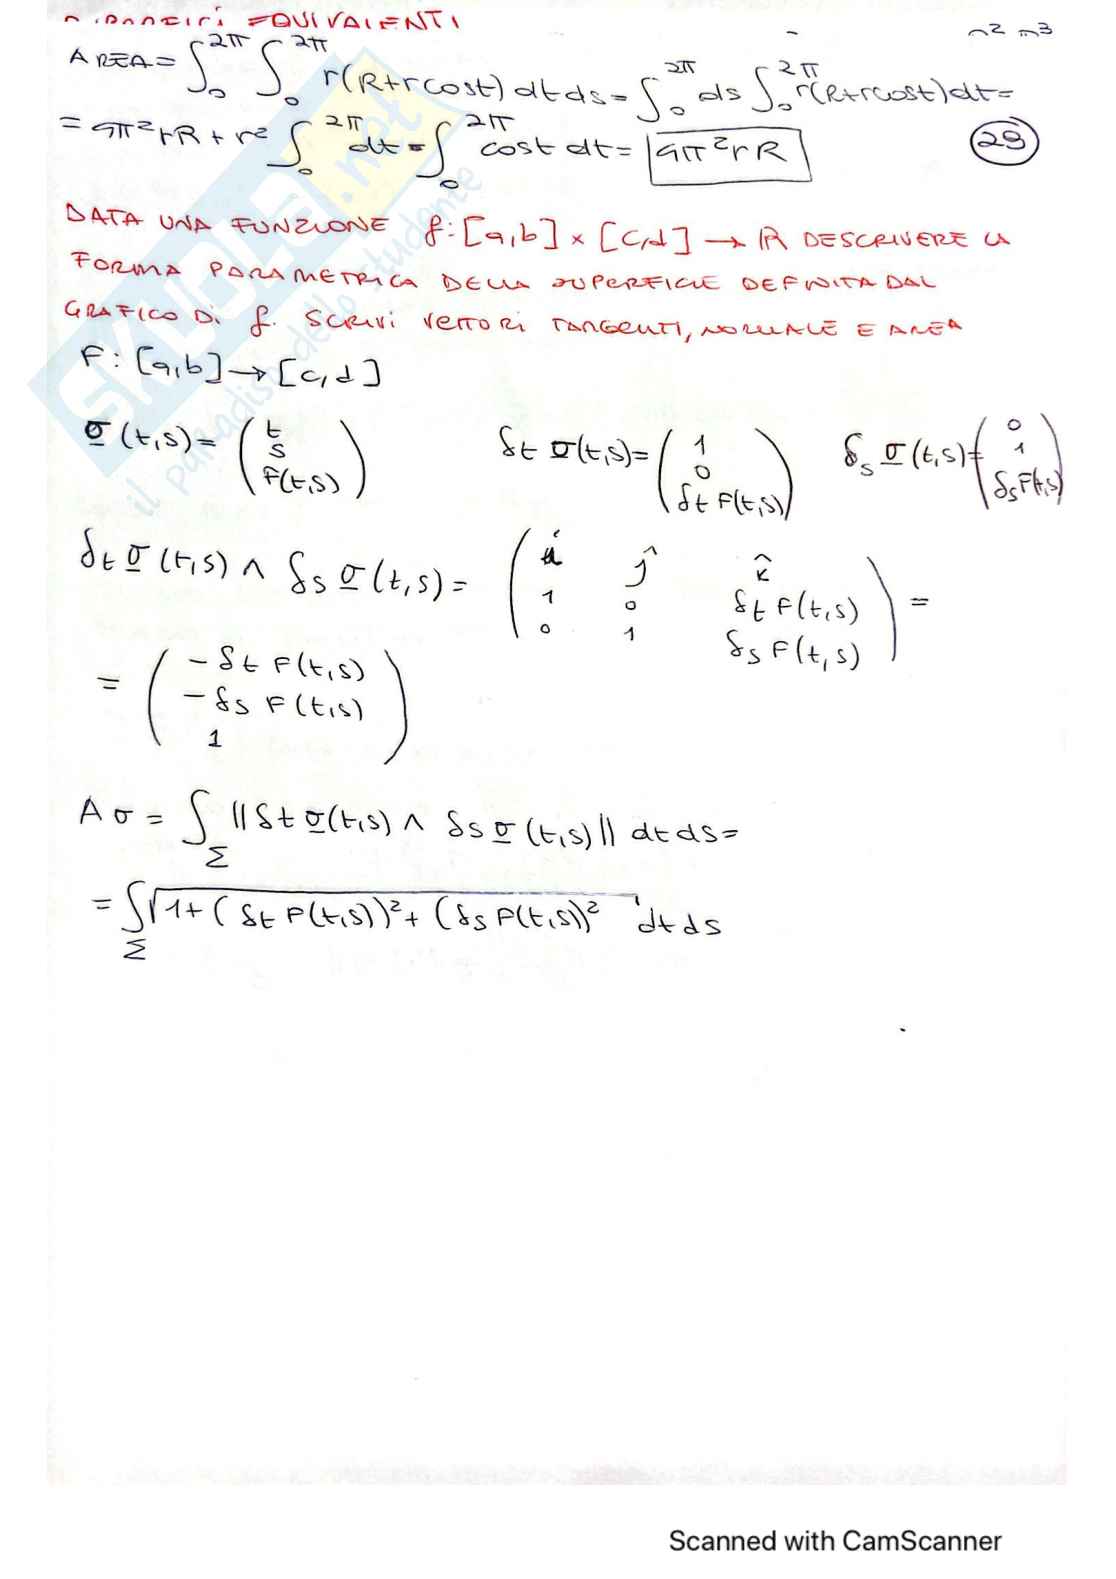 EQUIVALENTI
AREA = ∫₀^2π ∫₀^2π r(R+rcost) dt ds = ∫₀^2π ds ∫₀^2π r(R+rcost) dt =
= 4π²rR + r² ∫₀^2π dt = ∫₀^2π cost dt = 4π²rR
29
DATA UNA FUNZIONE f: [a,b] × [c,d] → ℝ DESCRIVERE LA
FORMA PARAMETRICA DELLA SUPERFICIE DEFINITA DAL
GRAFICO Di f. SCRIVI VETTORI TANGENTI, NORMALE E AREA
F: [a,b] → [c,d]
σ(t,s) = (t s F(t,s)) δt σ(t,s) = (1 0 δt F(t,s)) δs σ(t,s) = (0 1 δs F(t,s))
δt σ(t,s) ∧ δs σ(t,s) = ( ĵ k̂
1 0 δt F(t,s)
0 1 δs F(t,s) ) =
= ( - δt F(t,s)
- δs F(t,s)
1 )
Aσ = ∫Σ ||δt σ(t,s) ∧ δs σ(t,s)|| dt ds =
= ∫Σ √1+(δt F(t,s))²+(δs F(t,s))² dt ds
SKUOLA.net
il paradiso dello studente
Scanned with CamScanner